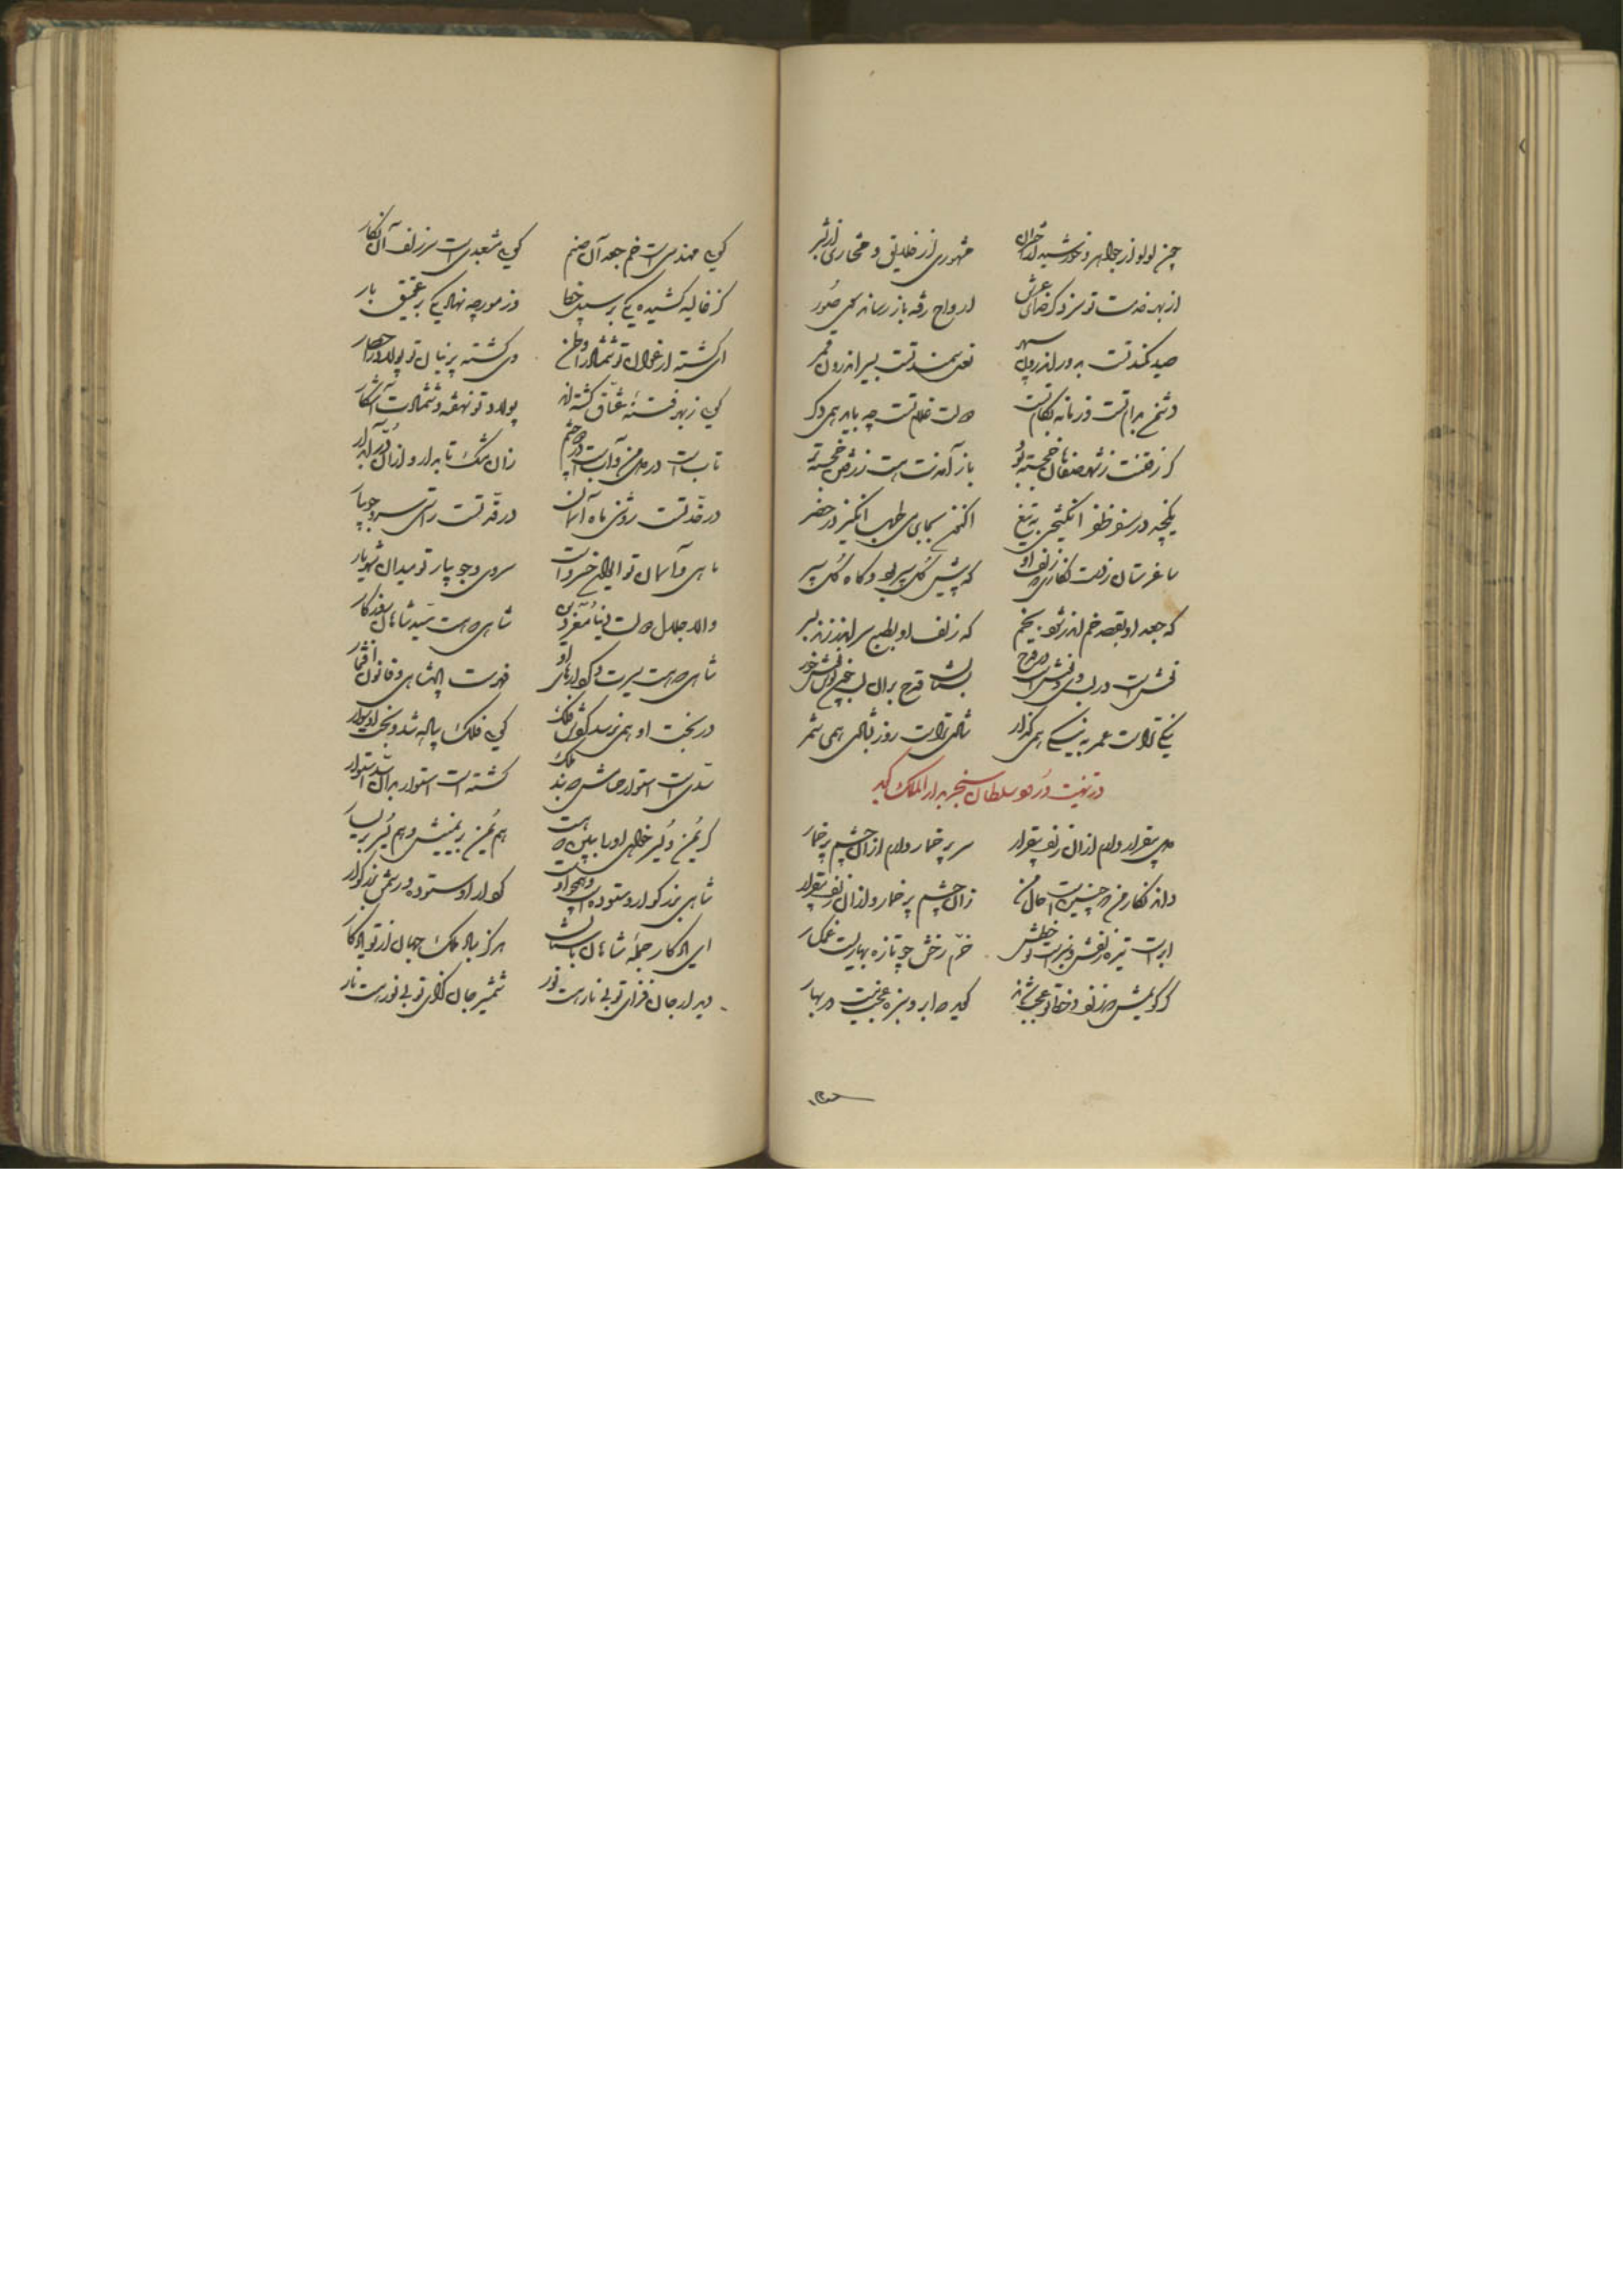 چون لولو از جواهر و خورشید از اختران مشهوری از خلایق و مختاری از بشر
از بهر خدمت تو سزد گر خدای عرش ارواح رفته باز رساند سوی صور
صید کمند تست بدور اندرون سپهر نعل سمند تست بسیر اندرون قمر
دشمن برام تست و زمانه بکام تست دولت غلام تست چه باید همی دگر
گر رفتنت ز شهر صفاهان خجسته بود باز آمدنت هست ز رفتن خجسته تر
یکچند در سفر ظفر انگیختی به تیغ اکنون بجای می طرب انگیز در حضر
ساغر ستان ز دست نگاری که زلف او گه پیش گل سپر بود و گاه گل سپر
گه جعد او بقصد خم اندر شود بخم گه زلف او بطبع سر اندر زند بسر
نقش است در لب و نوش است در قدح بستان قدح بر آن لب و نوش خور
نیکی تراست عمر به نیکی همی گذار شادی تراست روز بشادی همی شمر
در تهنیت ورود سلطان سنجر بدار الملک گوید
دل بیقرار دارم از آن زلف بیقرار سر پر خمار دارم از آن چشم پر خمار
داند نگار من که چنین است حال من زان چشم پر خمار و از آن زلف بیقرار
ابر است تیره زلفش و سبزه است خطش خرم رخش چو تازه بهار است غمگسار
گر گویمش که زلف و خط تو عجب شدند گوید که ابر و سبزه عجب نیست در بهار
گویی مهندس است خم جعد آن صنم گویی مشعبد است سر زلف آن نگار
کز غالیه کشیده یکی بر سپید خطا وز مورچه نهاد یکی بر عقیق بار
ای گشته ارغوان تو شمشاد را وطن وی گشته پرنیان تو پولاد را حصار
گویی ز بهر فتنه عشاق گشته‌اند پولاد تو نهفته و شمشاد آشکار
تاب است در دل من و آب است در دو چشم زان مشک تابدار و از آن در آبدار
در خد تست روشنی ماه آسمان در قد تست راستی سرو جویبار
ماهی و آسمان تو ایوان خسرو است سروی و جویبار تو میدان شهریار
والا جلال دولت دنیا معز دین شاهی که هست سید شاهان روزگار
شاهی که هست سیرت و کردارهای او فهرست پادشاهی و قانون افتخار
در بخت او همی نرسد گوش فلک گویی فلک پیاده شد و بخت او سوار
سدی است استوار حسامش که بند ملک گشته است استوار بدان سد استوار
گر یمن و یسر خواهی او را ببین که هست هم یمن بر یمینش و هم یسر بر یسار
شاهی بزرگوار و ستوده است و همچو او کردار او ستوده و رسمش بزرگوار
ای یادگار جمله شاهان باستان هرگز مباد ملک جهان از تو یادگار
دیدار جان فزای تو بی نار هست نور شمشیر جان گزای تو بی نور هست نار